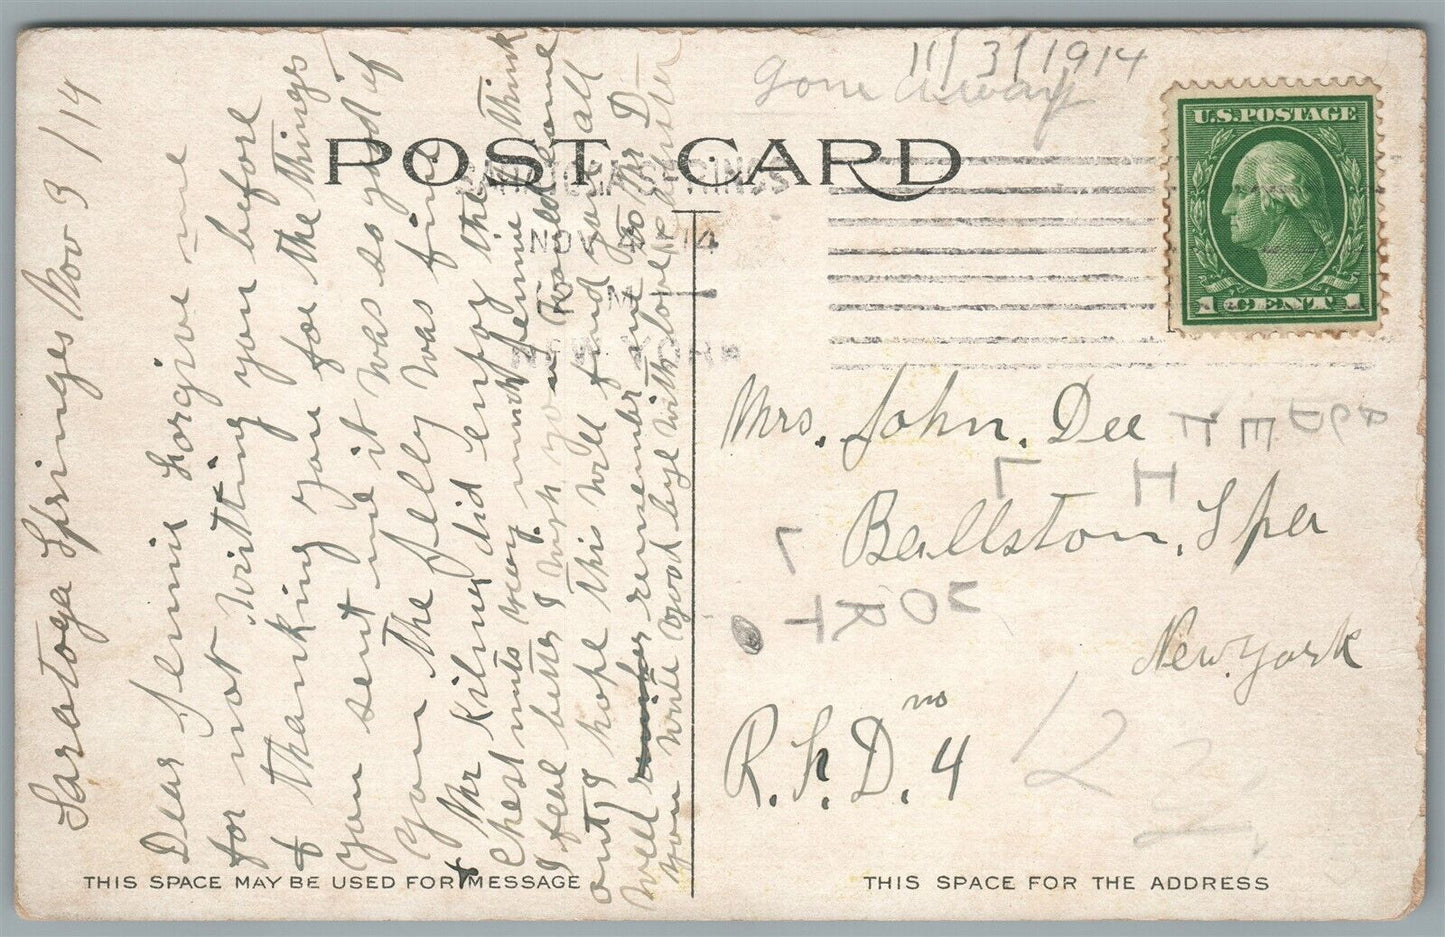 11/3/1914
Gone away
U.S. POSTAGE
1 CENT 1
POST CARD
SARATOGA SPRINGS
NOV 4
NEW YORK
Saratoga Springs Nov 3 /14
Dear Jennie Forgive me
for not writting you before
& thanking you for the things
you sent me it was so good of
you the jelly was fine
& Mr Kilmer did enjoy the
Chest nuts very much Jennie I think
I feal better I wish you would come
out I hope this will find you all
well remember me to Mr D
you will good bye with love
Mrs. John. Dee
Ballston. Spa
New. York
R. F. D. no 4
THIS SPACE MAY BE USED FOR MESSAGE
THIS SPACE FOR THE ADDRESS